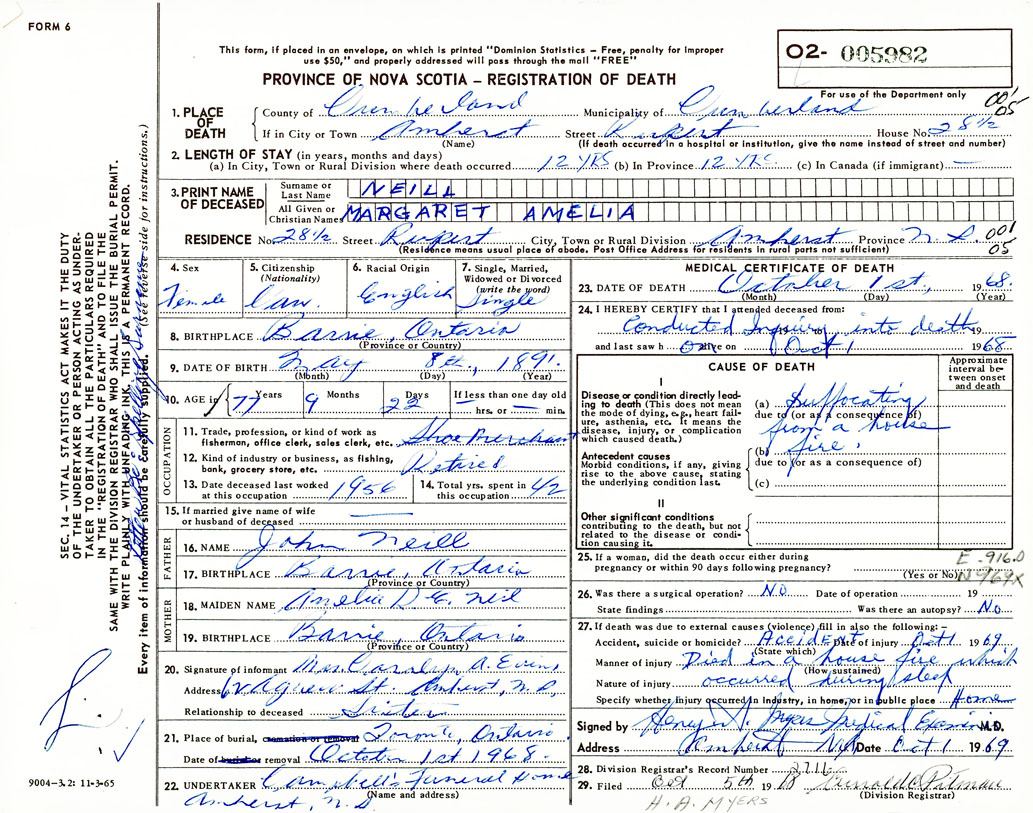 FORM 6
This form, if placed in an envelope, on which is printed "Dominion Statistics – Free, penalty for improper
use $50," and properly addressed will pass through the mail "FREE"
O2- 005982
PROVINCE OF NOVA SCOTIA – REGISTRATION OF DEATH
For use of the Department only
001
05
1. PLACE OF DEATH
County of Cumberland Municipality of Cumberland
If in City or Town Amherst Street Rupert House No. 28 1/2
(Name) (If death occurred in a hospital or institution, give the name instead of street and number)
2. LENGTH OF STAY (in years, months and days)
(a) In City, Town or Rural Division where death occurred 12 YRS (b) In Province 12 YRS (c) In Canada (if immigrant) —
3. PRINT NAME OF DECEASED
Surname or Last Name NEILL
All Given or Christian Names MARGARET AMELIA
RESIDENCE No. 28 1/2 Street Rupert City, Town or Rural Division Amherst Province N.S. 001
05
(Residence means usual place of abode. Post Office Address for residents in rural parts not sufficient)
4. Sex Female
5. Citizenship (Nationality) Can.
6. Racial Origin English
7. Single, Married, Widowed or Divorced (write the word) Single
8. BIRTHPLACE Barrie, Ontario
(Province or Country)
9. DATE OF BIRTH May 8th, 1891.
(Month) (Day) (Year)
10. AGE in 77 Years 9 Months 22 Days If less than one day old — hrs. or — min.
OCCUPATION
11. Trade, profession, or kind of work as
fisherman, office clerk, sales clerk, etc. Shoe Merchant
12. Kind of industry or business, as fishing,
bank, grocery store, etc. Retired
13. Date deceased last worked
at this occupation 1956
14. Total yrs. spent in
this occupation 42
15. If married give name of wife
or husband of deceased —
FATHER
16. NAME John Neill
17. BIRTHPLACE Barrie, Ontario
(Province or Country)
MOTHER
18. MAIDEN NAME Amelia D E. Neil
19. BIRTHPLACE Barrie, Ontario
(Province or Country)
20. Signature of informant Mrs. Carolyn A.
Address St. Amherst, N.S.
Relationship to deceased Sister
21. Place of burial, cremation or removal Toronto, Ontario
Date of burial or removal October 1st 1968.
22. UNDERTAKER Campbell's Funeral Home
(Name and address)
Amherst, N.S.
MEDICAL CERTIFICATE OF DEATH
23. DATE OF DEATH October 1st, 1968.
(Month) (Day) (Year)
24. I HEREBY CERTIFY that I attended deceased from:
Conducted Inquiry into death 19
and last saw h alive on Oct 1 1968
CAUSE OF DEATH
Approximate interval between onset and death
I
Disease or condition directly lead-
ing to death (This does not mean
the mode of dying, e.g., heart fail-
ure, asthenia, etc. It means the
disease, injury, or complication
which caused death.)
(a) Suffocating
due to (or as a consequence of)
from a house
Antecedent causes
Morbid conditions, if any, giving
rise to the above cause, stating
the underlying condition last.
(b) fire.
due to (or as a consequence of)
(c)
II
Other significant conditions
contributing to the death, but not
related to the disease or condi-
tion causing it.
25. If a woman, did the death occur either during
pregnancy or within 90 days following pregnancy?
(Yes or No)
E-916.0
N969X
26. Was there a surgical operation? NO Date of operation 19
State findings Was there an autopsy? No
27. If death was due to external causes (violence) fill in also the following: –
Accident, suicide or homicide? Accident Date of injury Oct 1 1969
(State which)
Manner of injury Died in a house fire which
(How sustained)
Nature of injury occurred during sleep
Specify whether injury occurred in industry, in home, or in public place Home
Signed by Henry A. Myers Medical Examiner M.D.
Address Amherst NS Date Oct 1 1969
28. Division Registrar's Record Number 2711
29. Filed Oct 5th 1968 Pitman
(Division Registrar)
H.A. MYERS
SEC. 14 – VITAL STATISTICS ACT MAKES IT THE DUTY
OF THE UNDERTAKER OR PERSON ACTING AS UNDER-
TAKER TO OBTAIN ALL THE PARTICULARS REQUIRED
IN THE "REGISTRATION OF DEATH" AND TO FILE THE
SAME WITH THE DIVISION REGISTRAR WHO SHALL ISSUE THE BURIAL PERMIT.
WRITE PLAINLY WITH UNFADING INK, THIS IS A PERMANENT RECORD.
Every item of information should be carefully supplied. (See reverse side for instructions.)
9004-3.2: 11-3-65